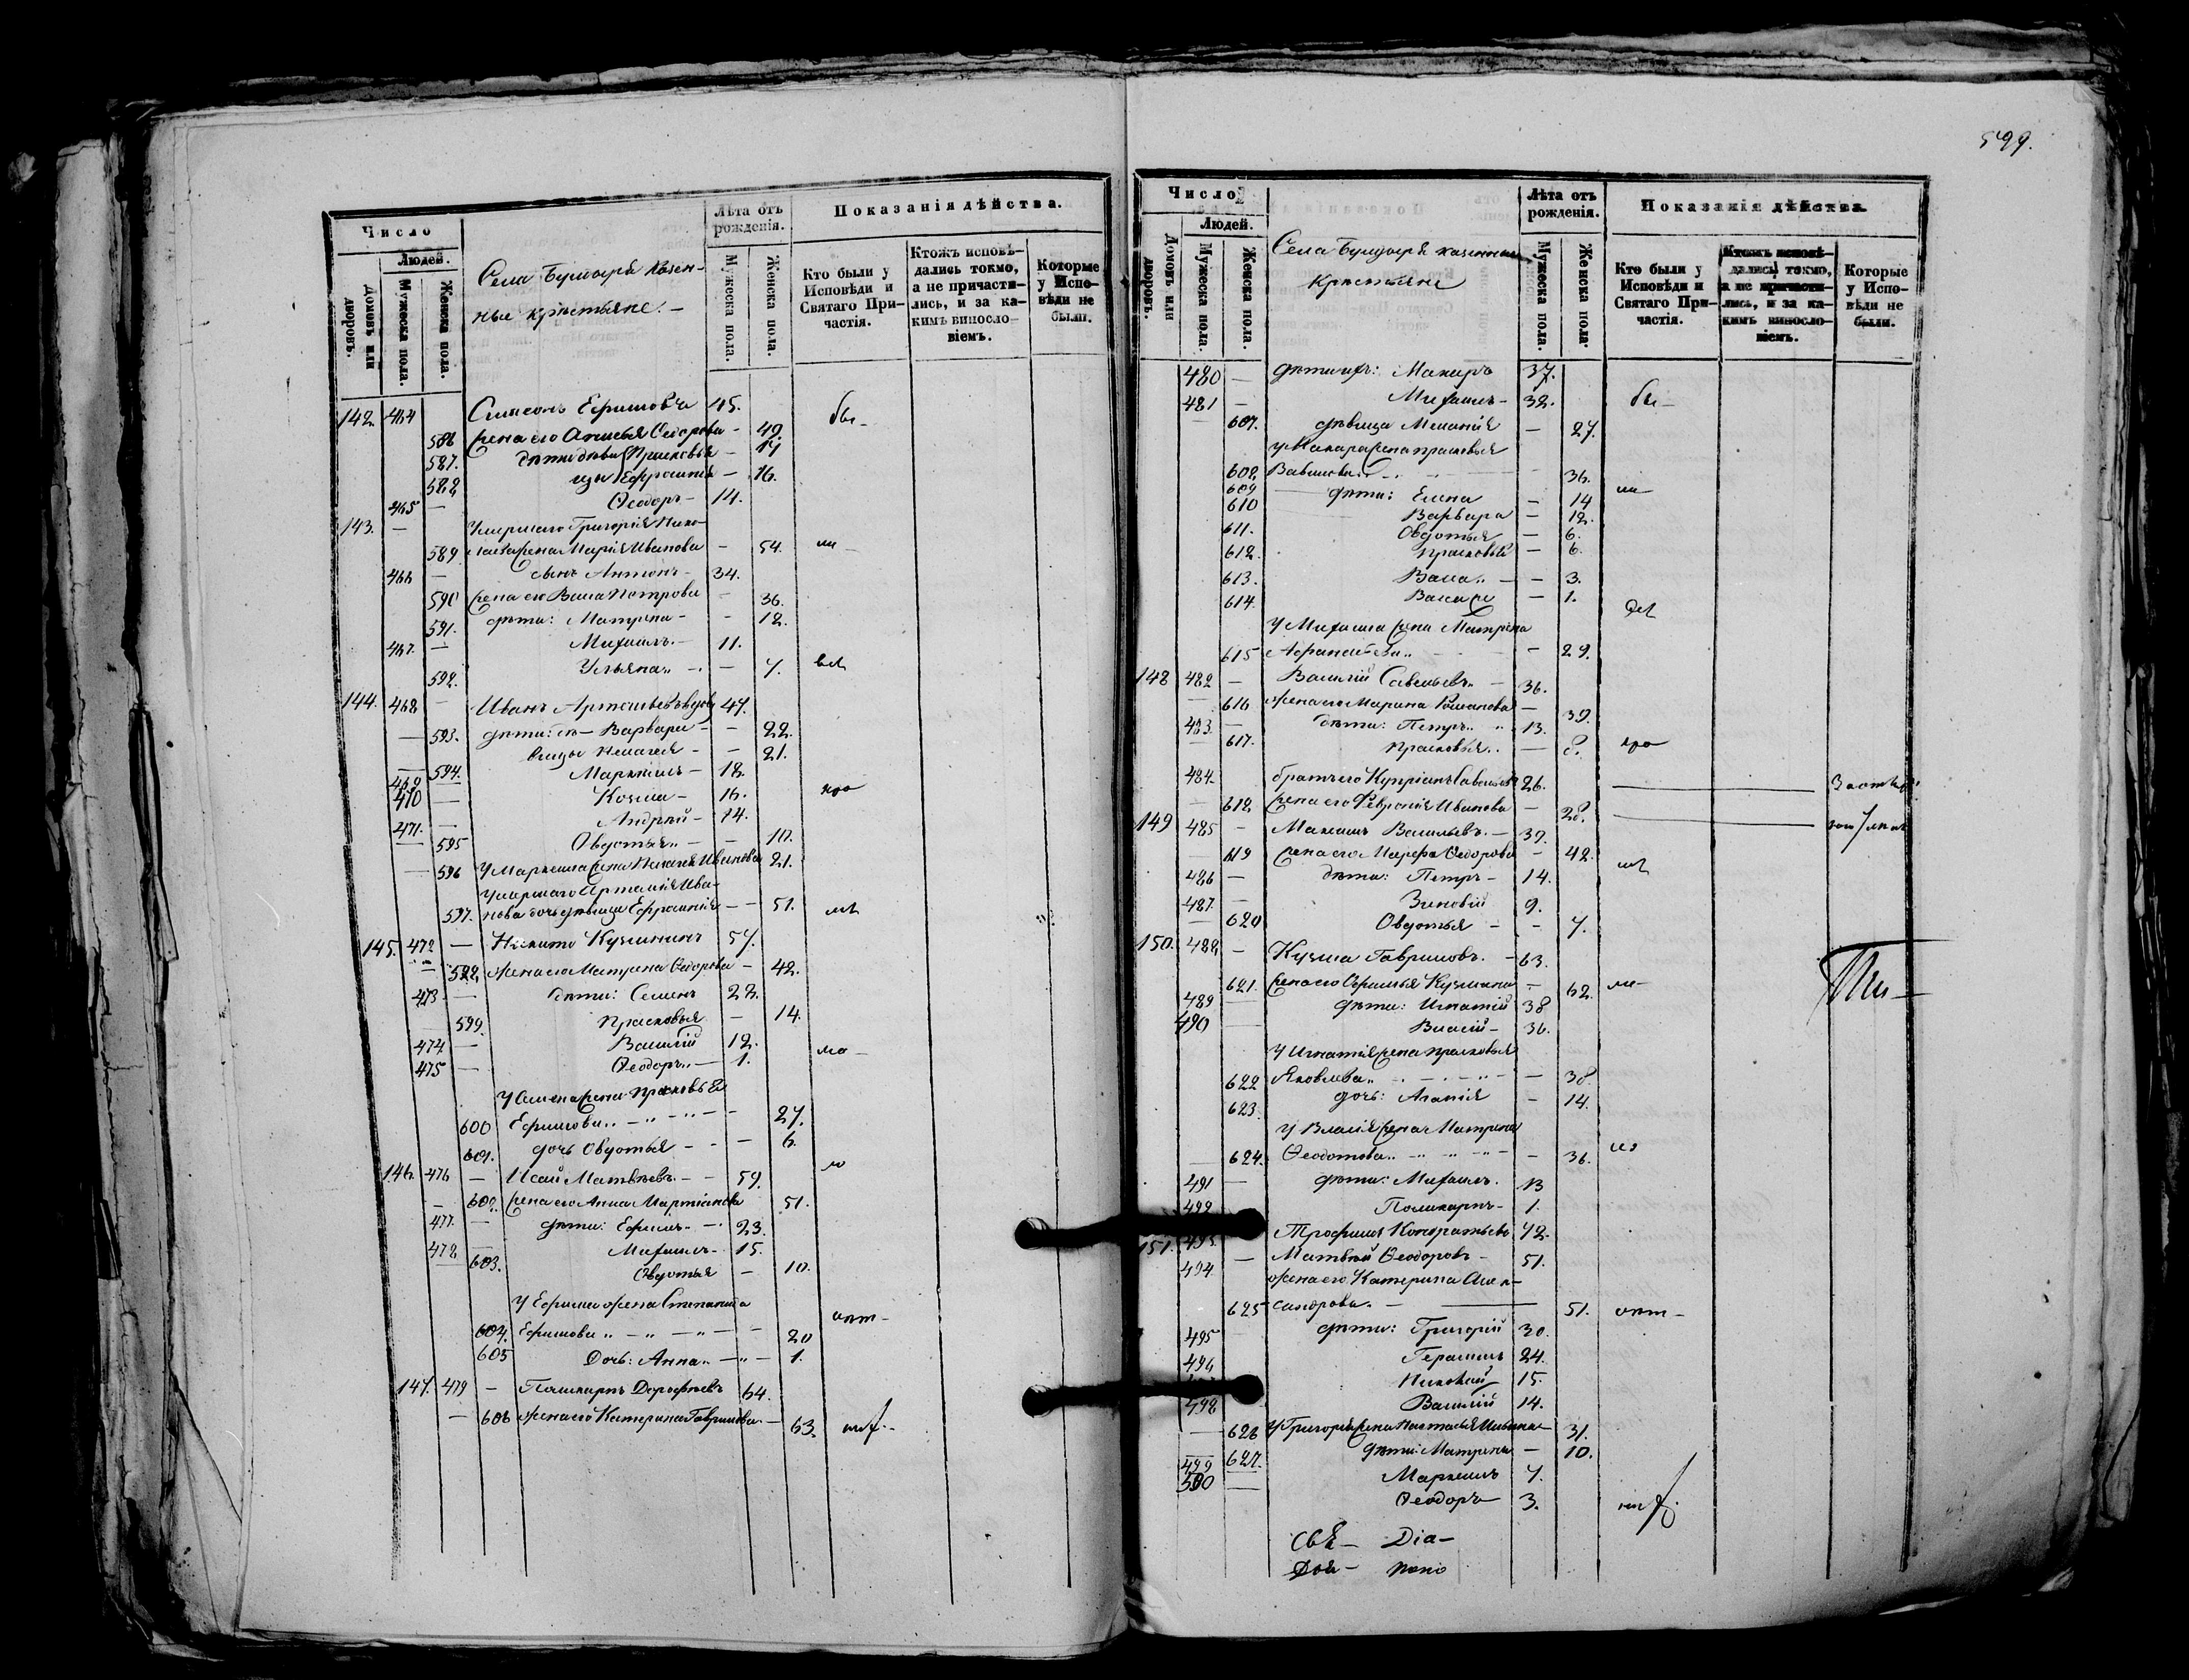 Число
Людей.
Домовъ или дворовъ.
Мужеска пола.
Женска пола.
Села Бундыря Казен-
ные крестьяне. –
Лѣта отъ рожденія.
Мужеска пола.
Женска пола.
Показанія дѣйства.
Кто были у Исповѣди и Святаго При-частія.
Ктожъ исповѣ-дались токмо, а не причасти-лись, и за ка-кимъ винослo-віемъ.
Которые у Испо-вѣди не были.
142. 464 Симеонъ Ефимовъ 45. бы-
586 жена его Анисья Ѳедорова – 49.
587. дѣти дѣви Прасковья – 17
588 цы Ефросинія – 16.
465 – Ѳеодоръ – 14.
143. – Умершаго Григорія Нико-
589 лаева жена Марія Иванова – 54. ли –
466 – сынъ Антонъ – 34.
590 жена его Васса Петрова – 36.
591. дѣти: Матрена – – 12.
467. – Михаилъ. – 11.
592. Ульяна „ – – 7. всѣ
144. 468 – Иванъ Артемьевъ вдовъ 47.
593. дѣти: дѣ – Варвара – – 22.
594. вицы Пелагея – – 21.
469 Маркелъ – 18.
470 – Козма – 16. про
471. – Андрей – 14.
595 Овдотья „ – – 10.
596 У Маркела жена Пелагея Иванова 21.
Умершаго Артемія Ива-
597. нова дочь дѣвица Ефросинія – – 51.
145. 472 – Никита Кузминъ 57.
598 жена его Матрена Ѳедорова – 42.
473 – дѣти: Семенъ 28.
599. Прасковья – 14.
474 – Василій 12.
475 – Ѳеодоръ „ – 1. мо –
У Семена жена Прасковья
600 Ефимова „ – „ – „ – – 27.
601. дочь Овдотья – – – 6.
146. 476 – Исай Матвѣевъ. – – 59.
602. жена его Анна Мартіанова 51.
477. – дѣти: Ефимъ. – 23.
478 – Михаилъ. 15.
603. Овдотья – 10.
У Ефима жена Степанида
604. Ефимова „ – „ – „ – – 20
605 Дочь: Анна „ – „ – 1.
147. 479 – Поликарпъ Дорофѣевъ 64.
– 606 жена его Катерина Гаврилова. – 63.
599.
Число
Людей.
Домовъ или дворовъ.
Мужеска пола.
Женска пола.
Села Бундыря казенные
крестьяне
Лѣта отъ рожденія.
Мужеска пола.
Женска пола.
Показанія дѣйства.
Кто были у Исповѣди и Святаго При-частія.
Ктожъ исповѣ-дались токмо, а не причасти-лись, и за ка-кимъ винослo-віемъ.
Которые у Испо-вѣди не были.
480 – дѣти ихъ: Макаръ 37.
481 – Михаилъ – 32. бы –
607. дѣвица Меланія – 27.
у Макара жена Прасковья
608. Вавилова „ 36.
609 дѣти: Елена – 14 ли –
610 Варвара – 12.
611. Овдотья – 6.
612. Прасковья – 6.
613. Васса „ – – 3.
614. – 1.
У Михаила жена Матрена
615 Афанасьева „ – 29.
148 482 – Василій Савельевъ „ – 36.
616 жена его Марина Романова – 39.
483 – дѣти: Петръ „ „ 13.
617. Прасковья „ – 8. про
484. братъ его Купріянъ Савельевъ 26.
618 жена его Февронія Иванова – 28.
149 485 – Максимъ Васильевъ. – 39.
619 жена его Марфа Ѳедорова – 42.
486 – дѣти: Петръ – 14.
487 – Зиновій 9.
620 Овдотья – – 7.
150. 488 – Кузма Гавриловъ. – 63.
621. жена его Кузмина – 62.
489 – дѣти: Игнатій 38
490 Власій – 36.
У Игнатія жена Прасковья
622 Яковлева „ – 38.
623. дочь: Агапія – 14.
У Власія жена Матрена
624. Ѳеодотова „ – 36.
491 – дѣти: Михаилъ. 13
492 Поликарпъ – 1.
151. 493 Трофимъ Кондратьевъ 72.
494 – Матвѣй Ѳеодоровъ – 51.
жена его Катерина Алек–
625 сандрова „ – 51.
495 – дѣти: Григорій 30.
496 Герасимъ 24.
Николай 15.
498 Василій 14.
626 У Григорія жена Настасья 31.
627. дѣти: Матрена – 10.
499 Маркелъ 7.
500 – Ѳеодоръ 3.
Свя – Діа –
Доя – коно